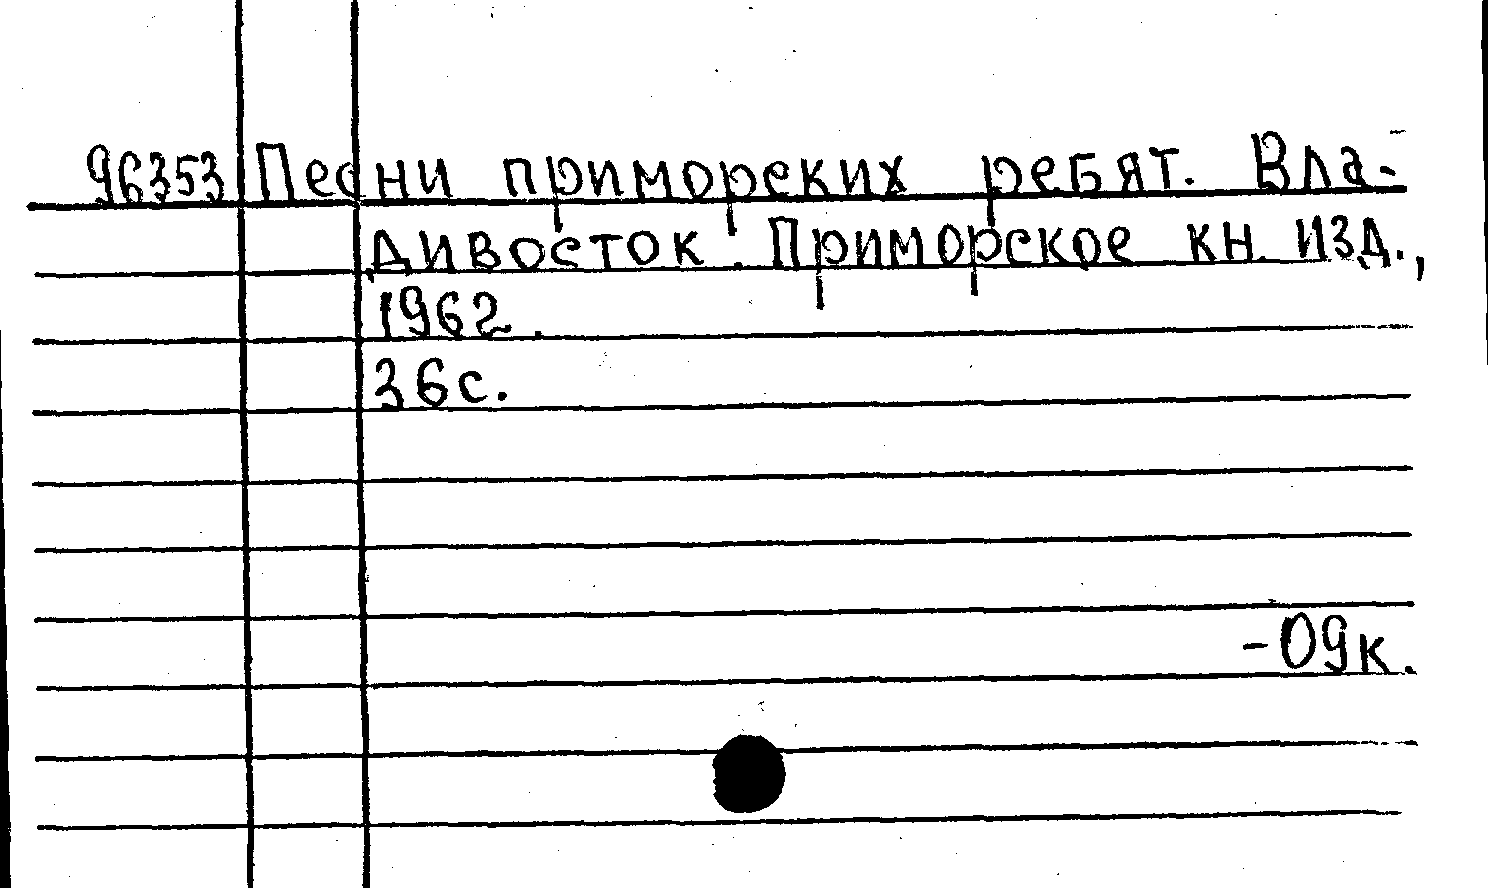 96353 Песни приморских ребят. Вла-
дивосток. Приморское кн. изд.,
1962.
36с.
-09к.